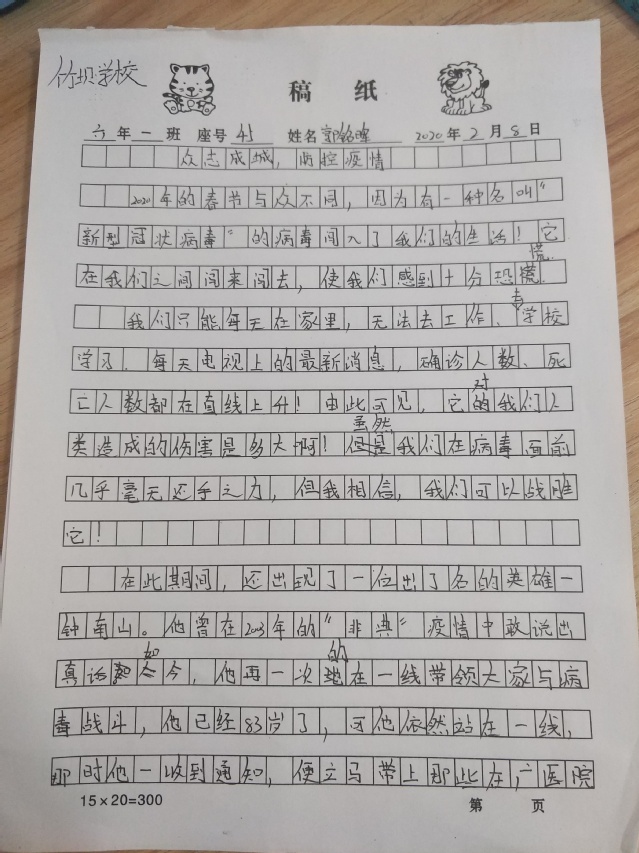 竹坝学校
稿纸
六年一班 座号45 姓名郭铭晖 2020年2月8日
众志成城，防控疫情
2020年的春节与众不同，因为有一种名叫“
新型冠状病毒”的病毒闯入了我们的生活！它
慌
在我们之间闯来闯去，使我们感到十分恐慌.
我们只能每天在家里，无法去工作、去学校
学习.每天电视上的最新消息，确诊人数、死
对
亡人数都在直线上升！由此可见，它的我们人
虽然
类造成的伤害是多大啊！但是我们在病毒面前
几乎毫无还手之力，但我相信，我们可以战胜
它！
在此其间，还出现了一位出了名的英雄一
钟南山。他曾在2003年的“非典”疫情中敢说出
如 的
真话今，他再一次地在一线带领大家与病
毒战斗，他已经83岁了，可他依然站在一线，
那时他一收到通知，便立马带上那些在广医院
15×20=300 第 页